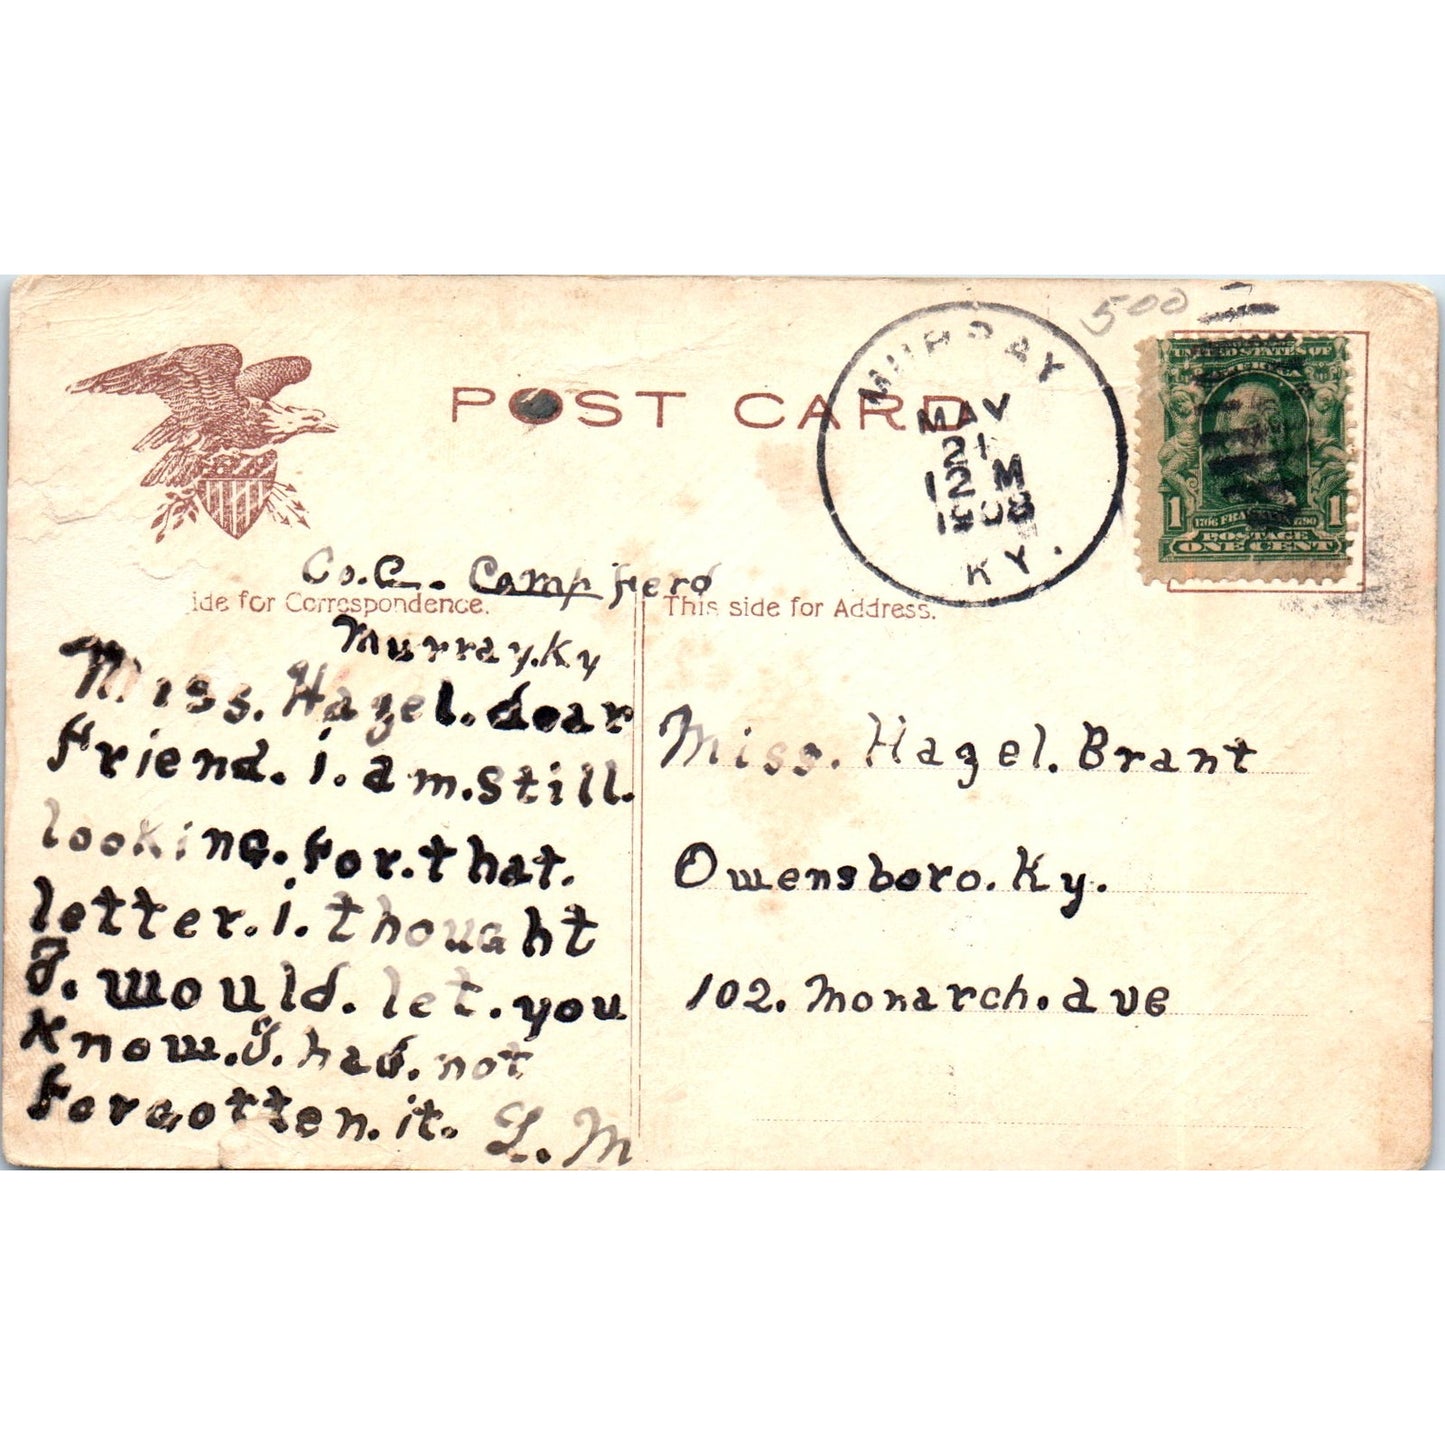 500
POST CARD
MURRAY
MAY
21
12 M
1908
KY.
UNITED STATES OF
AMERICA
1 1
1706 FRANKLIN 1790
POSTAGE
ONE CENT
Co. C. Camp
ide for Correspondence.
This side for Address.
Murray. Ky
Miss. Hazel. dear
friend. i. am. still.
looking. for. that.
letter. i. thought
I. would. let. you
know. I. had. not
forgotten. it. L. M
Miss. Hazel. Brant
Owensboro. Ky.
102. Monarch. ave